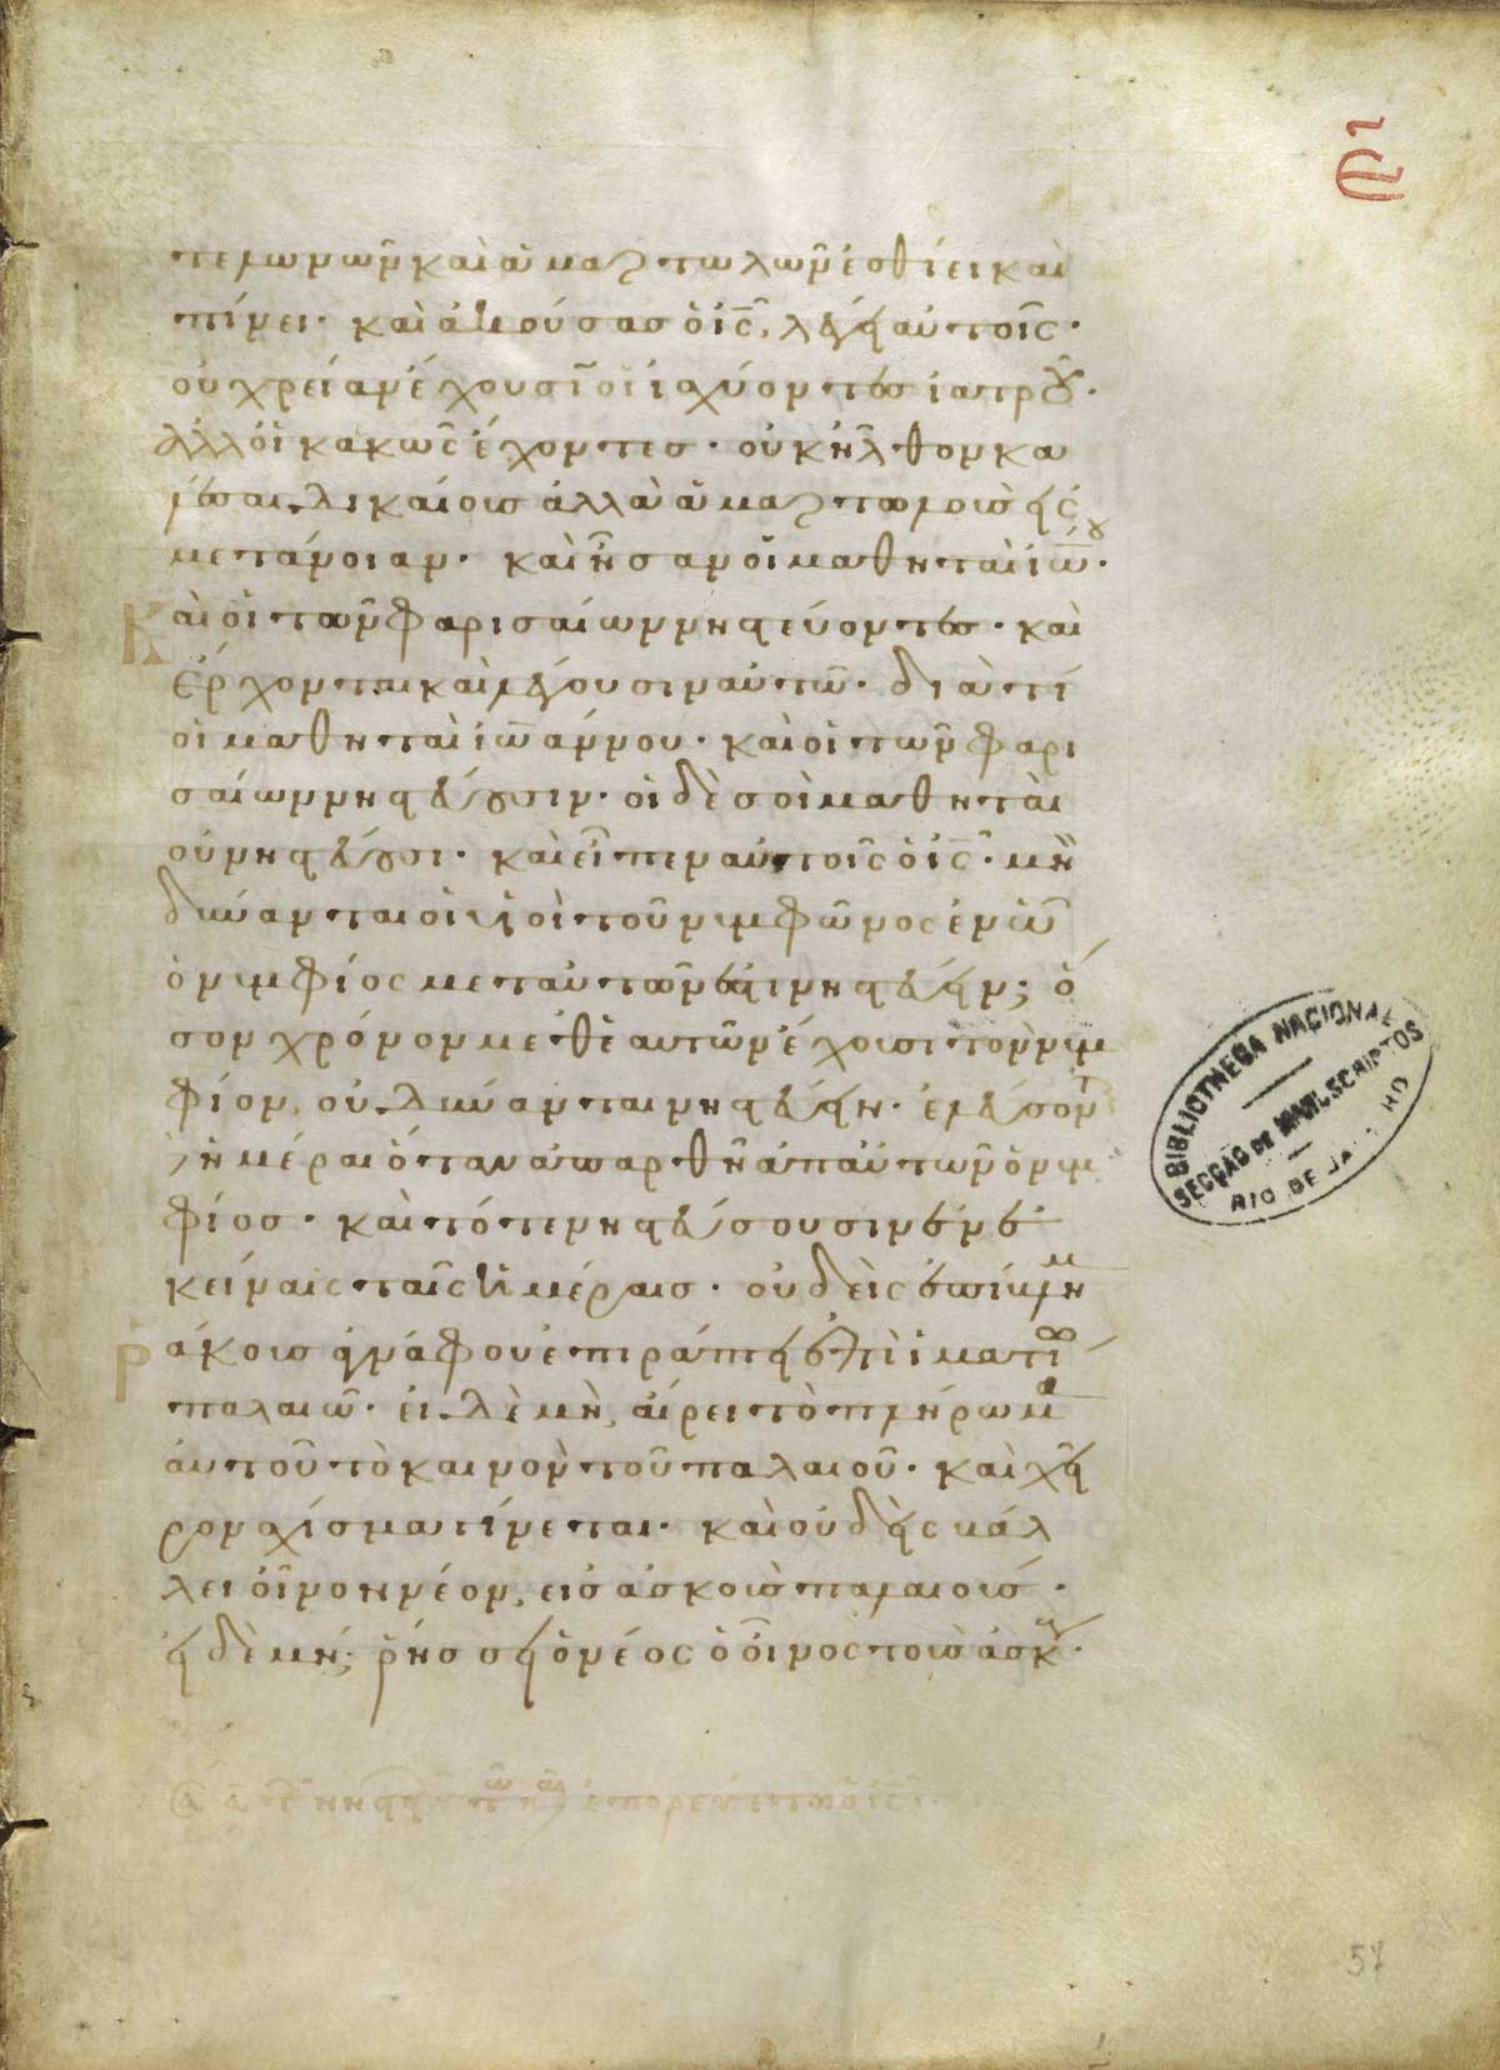 ει
τελωνῶν καὶ ἁμαρτωλῶν ἐσθίει καὶ
πίνει· καὶ ἀκούσας ὁ ις, λέγει αὐτοῖς·
οὐ χρείαν ἔχουσιν οἱ ἰσχύοντες ἰατροῦ·
ἀλλ οἱ κακῶς ἔχοντες· οὐκ ἦλθον κα
λέσαι δικαίους ἀλλὰ ἁμαρτωλοὺς εἰς
μετάνοιαν· καὶ ἦσαν οἱ μαθηταὶ ἰωου·
Και οἱ τῶν φαρισαίων νηστεύοντες· καὶ
ἔρχονται καὶ λέγουσιν αὐτῶ· διὰ τί
οἱ μαθηταὶ ἰωάννου· καὶ οἱ τῶν φαρι
σαίων νηστεύουσιν· οἱ δὲ σοὶ μαθηταὶ
οὐ νηστεύουσι· καὶ εἶπεν αὐτοῖς ὁ ις· μὴ
δύνανται οἱ υἱοὶ τοῦ νυμφῶνος ἐν ὧ
ὁ νυμφίος μετ αὐτῶν ἐστι νηστεύειν; ὅ
σον χρόνον μεθ ἑαυτῶν ἔχουσι τὸν νυμ
φίον, οὐ δύνανται νηστεύειν· ἐλεύσον
ἡμέραι ὅταν ἀπαρθῆ ἀπ αὐτῶν ὁ νυμ
φίος· καὶ τότε νηστεύσουσιν ἐν ἐ
κείναις ταῖς ἡμέραις· οὐδεὶς ἐπίβλημ
Ράκους ἀγνάφου ἐπιράπτει ἐπὶ ἱματίω
παλαιῶ· εἰ δὲ μὴ, αἴρει τὸ πλήρωμα
αὐτοῦ τὸ καινὸν τοῦ παλαιοῦ· καὶ χεῖ
ρον σχίσμα γίνεται· καὶ οὐδεὶς βάλ
λει οἶνον νέον, εἰς ἀσκοὺς παλαιούς·
εἰ δὲ μή; ῥήσσει ὁ νέος ὁ οἶνος τοὺς ἀσκού·
ἐπορεύετο ὁ ις
BIBLIOTHECA NACIONAL
SECÇÃO DE MANUSCRIPTOS
RIO DE JA
57